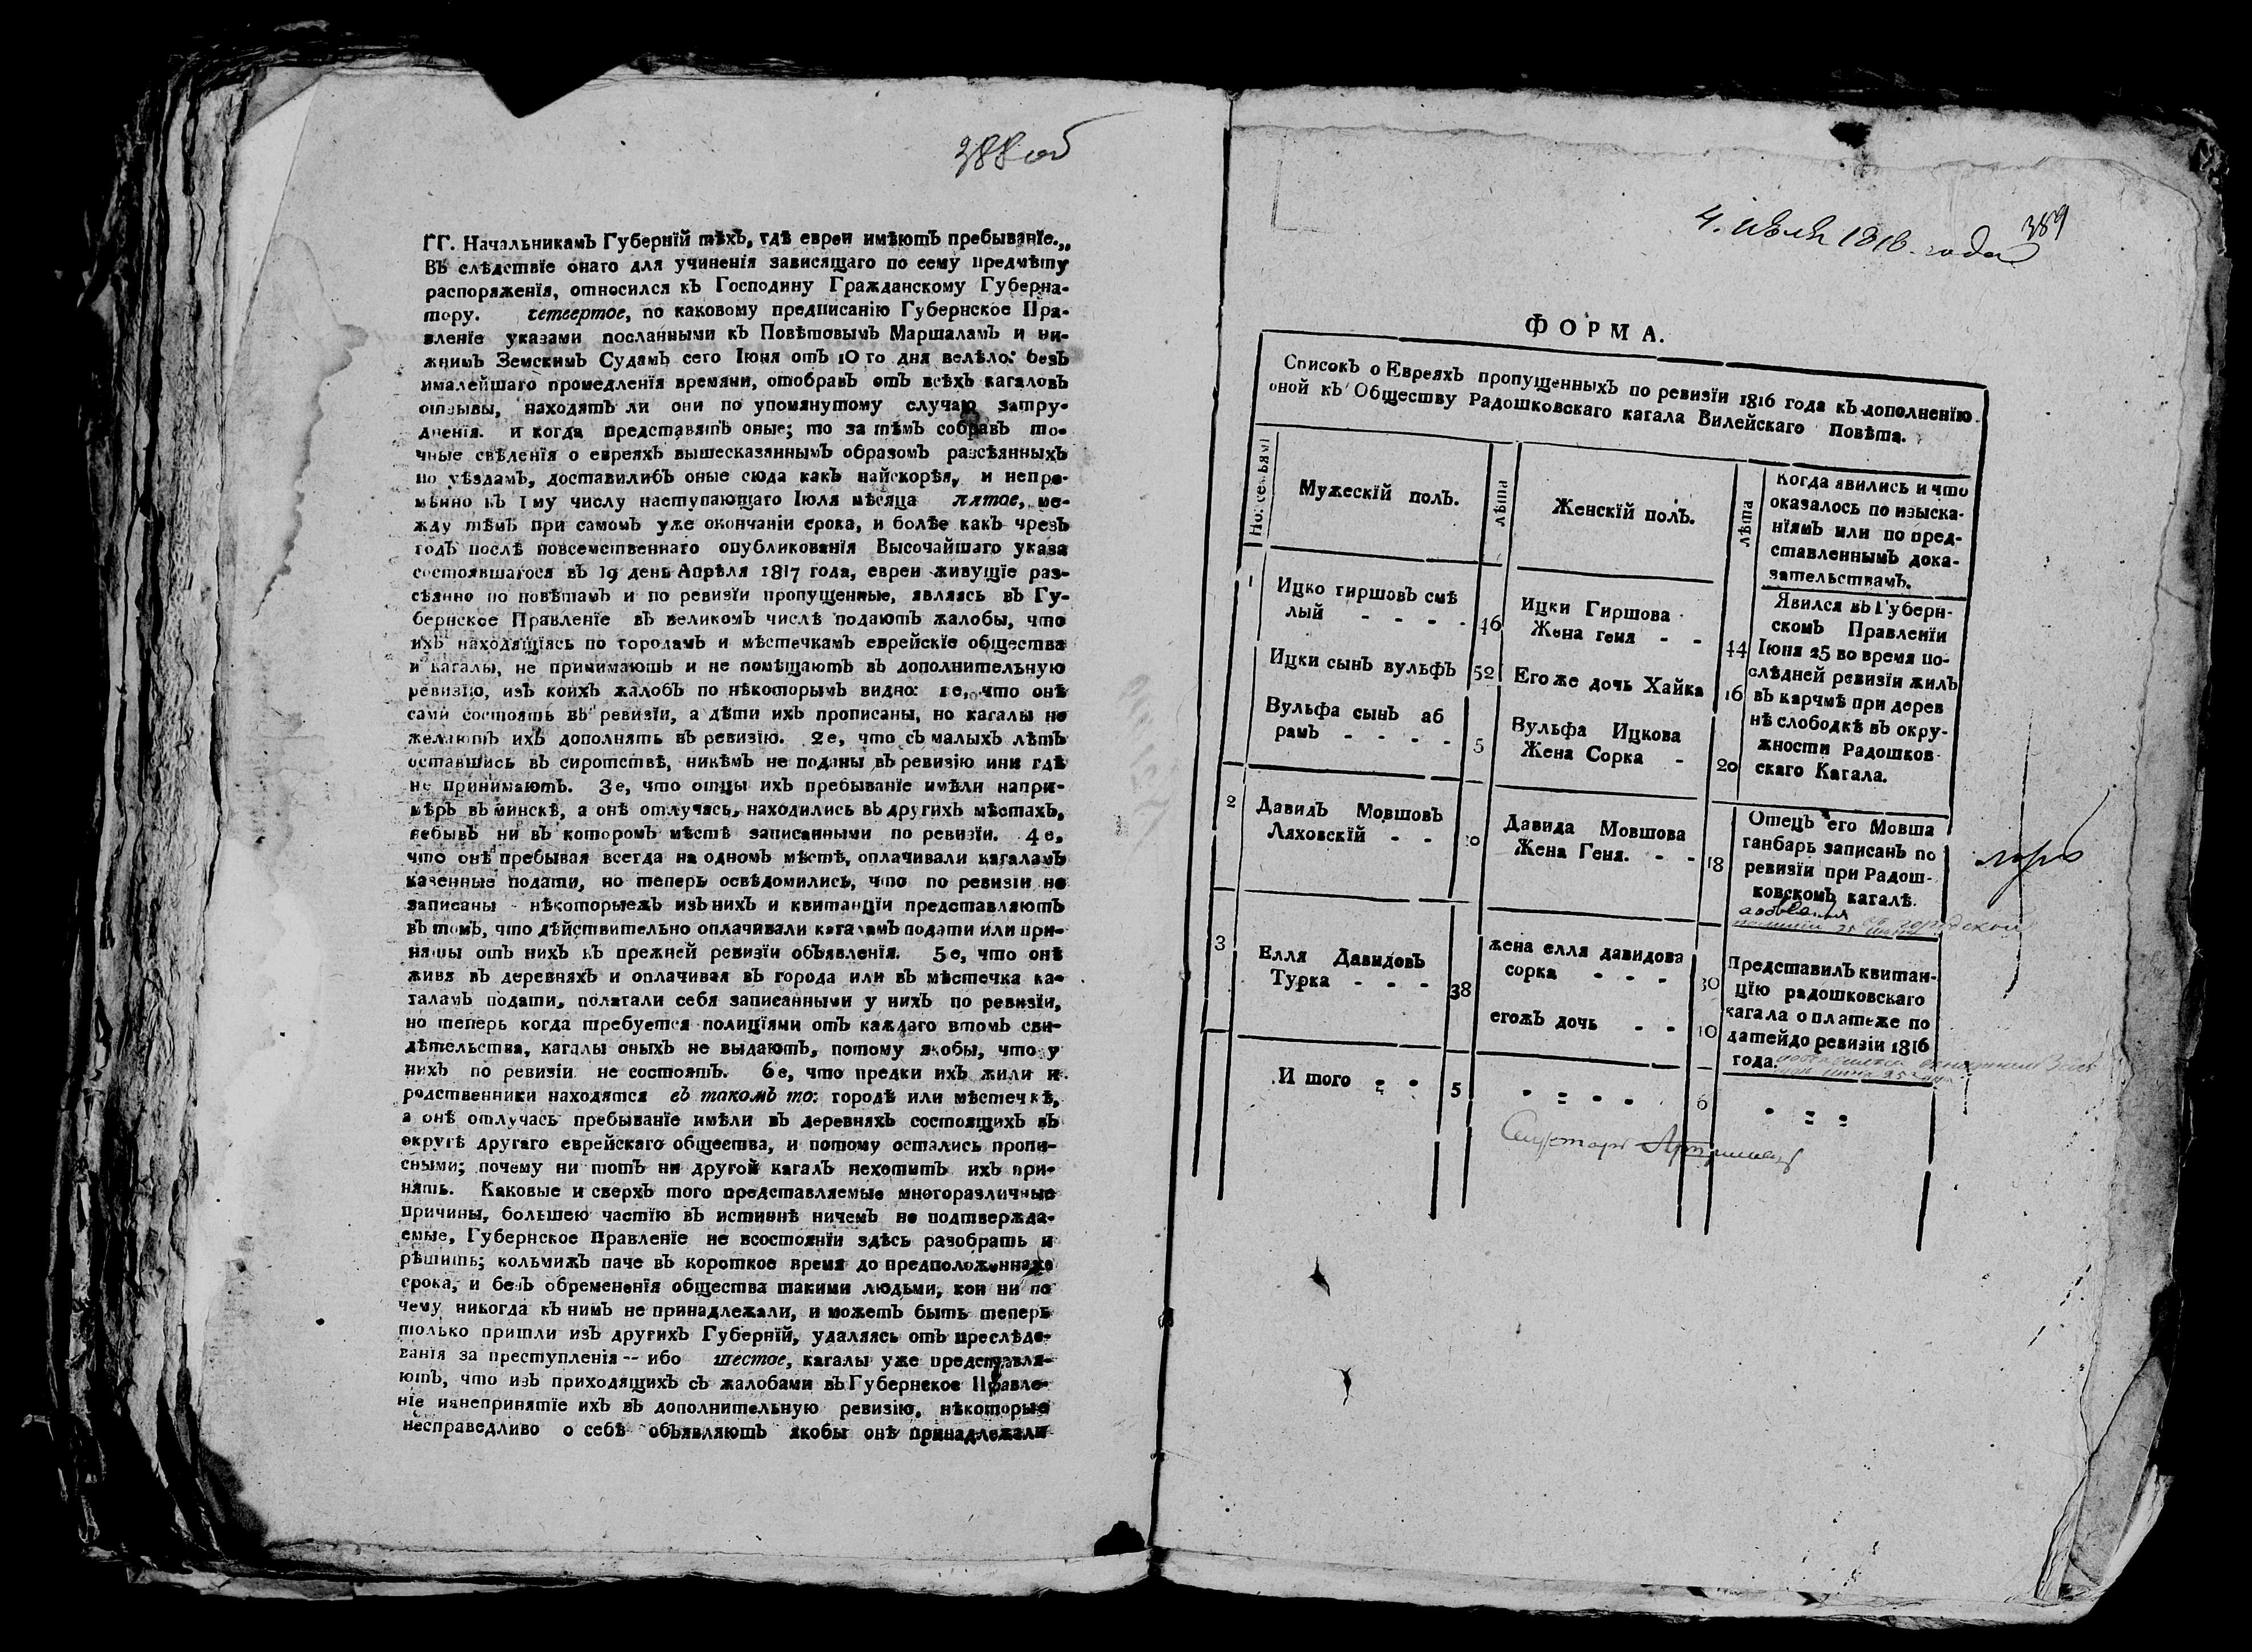 388 об
ГГ. Начальникамъ Губерній тѣхъ, гдѣ евреи имѣютъ пребываніе.,,
Въ слѣдствіе онаго для учиненія зависящаго по сему предмѣту
распоряженія, относился къ Господину Гражданскому Губерна-
тору. четвертое, по каковому предписанію Губернское Пра-
вленіе указами посланными къ Повѣтовымъ Маршаламъ и ни-
жнимъ Земскимъ Судамъ сего Іюня отъ 10 го дня велѣло: безъ
ималейшаго промедленія времяни, отобравъ отъ всѣхъ кагаловъ
отзывы, находятъ ли они по упомянутому случаю затру-
дненія. и когда представятъ оные; то за тѣмъ собравъ то-
чные свѣденія о евреяхъ вышесказаннымъ образомъ разсѣянныхъ
по уѣздамъ, доставилибъ оные сюда какъ найскорѣя, и непре-
мѣнно къ 1 му числу наступающаго Іюля мѣсяца пятое, ме-
жду тѣмъ при самомъ уже окончаніи срока, и болѣе какъ чрезъ
годъ послѣ повсемственнаго опубликованія Высочайшаго указа
состоявшагося въ 19 день Апрѣля 1817 года, евреи живущіе раз-
сѣянно по повѣтамъ и по ревизіи пропущенные, являясь въ Гу-
бернское Правленіе въ великомъ числѣ подаютъ жалобы, что
ихъ находящіясь по городамъ и мѣстечкамъ еврейскіе общества
и кагалы, не принимаютъ и не помѣщаютъ въ дополнительную
ревизію, изъ коихъ жалобъ по нѣкоторымъ видно: 1е, что онѣ
сами состоять въ ревизіи, а дѣти ихъ прописаны, но кагалы не
желаютъ ихъ дополнять въ ревизію. 2е, что съ малыхъ лѣтъ
оставшись въ сиротствѣ, никѣмъ не поданы въ ревизію ини гдѣ
не принимаютъ. 3е, что отцы ихъ пребываніе имѣли напри-
мѣръ въ минскѣ, а онѣ отлучась, находились въ другихъ мѣстахъ,
небывъ ни въ которомъ мѣстѣ записанными по ревизіи. 4е,
что онѣ пребывая всегда на одномъ мѣстѣ, оплачивали кагаламъ
казенные подати, но теперь освѣдомились, что по ревизіи не
записаны - нѣкоторыежъ изъ нихъ и квитанціи представляютъ
въ томъ, что дѣйствительно оплачивали кагаламъ подати или при-
няты отъ нихъ къ прежней ревизіи объявленія. 5е, что онѣ
живя въ деревняхъ и оплачивая въ города или въ мѣстечка ка-
галамъ подати, полагали себя записанными у нихъ по ревизіи,
но теперь когда требуется полиціями отъ каждаго втомъ сви-
дѣтельства, кагалы оныхъ не выдаютъ, потому якобы, что у
нихъ по ревизіи не состоятъ. 6е, что предки ихъ жили и
родственники находятся въ такомъ то: городѣ или мѣстечкѣ,
а онѣ отлучась пребываніе имѣли въ деревняхъ состоящихъ въ
округѣ другаго еврейскаго общества, и потому остались пропи-
сными; почему ни тотъ ни другой кагалъ нехотитъ ихъ при-
нять. Каковые и сверхъ того представляемые многоразличные
причины, большею частію въ истиннѣ ничемъ не подтвержда-
емые, Губернское Правленіе не всостояніи здѣсь разобрать и
рѣшить; кольмижъ паче въ короткое время до предположеннаго
срока, и безъ обремененія общества такими людьми, кои ни по
чему никогда къ нимъ не принадлежали, и можетъ быть теперь
только пришли изъ другихъ Губерній, удаляясь отъ преслѣдо-
ванія за преступленія -- ибо шестое, кагалы уже представля-
ютъ, что изъ приходящихъ съ жалобами въ Губернское Правле-
ніе нанепринятіе ихъ въ дополнительную ревизію, нѣкоторые
несправедливо о себѣ объявляютъ якобы онѣ принадлежали
389
4. июля 1818 года
ФОРМА.
Списокъ о Евреяхъ пропущенныхъ по ревизіи 1816 года къ дополненію
оной къ Обществу Радошковскаго кагала Вилейскаго Повѣта.
Но: семьямъ
Мужескій полъ.
лѣта
Женскій полъ.
лѣта
Когда явились и что
оказалось по изыска-
ніямъ или по пред-
ставленнымъ дока-
зательствамъ.
1
Ицко гиршовъ смѣ
лый - - - - 46
Ицки сынъ вульфъ 52
Вульфа сынъ аб
рамъ - - - - 5
Ицки Гиршова
Жена геня - - 44
Его же дочь Хайка 16
Вульфа Ицкова
Жена Сорка - 20
Явился въ Губерн-
скомъ Правленіи
Іюня 25 во время по-
слѣдней ревизіи жилъ
въ карчмѣ при дерев
нѣ слободкѣ въ окру-
жности Радошков-
скаго Кагала.
2
Давидъ Мовшовъ
Ляховскій - -
Давида Мовшова
Жена Геня. - - 18
Отецъ его Мовша
ганбарь записанъ по
ревизіи при Радош-
ковскомъ кагалѣ.
3
Елля Давидовъ
Турка - - - 38
жена елля давидова
сорка - - - 30
егожъ дочь - - 10
Представилъ квитан-
цію радошковскаго
кагала о платеже по
датей до ревизіи 1816
года.
И того - - 5
- - - - 6
- - -
Секретарь